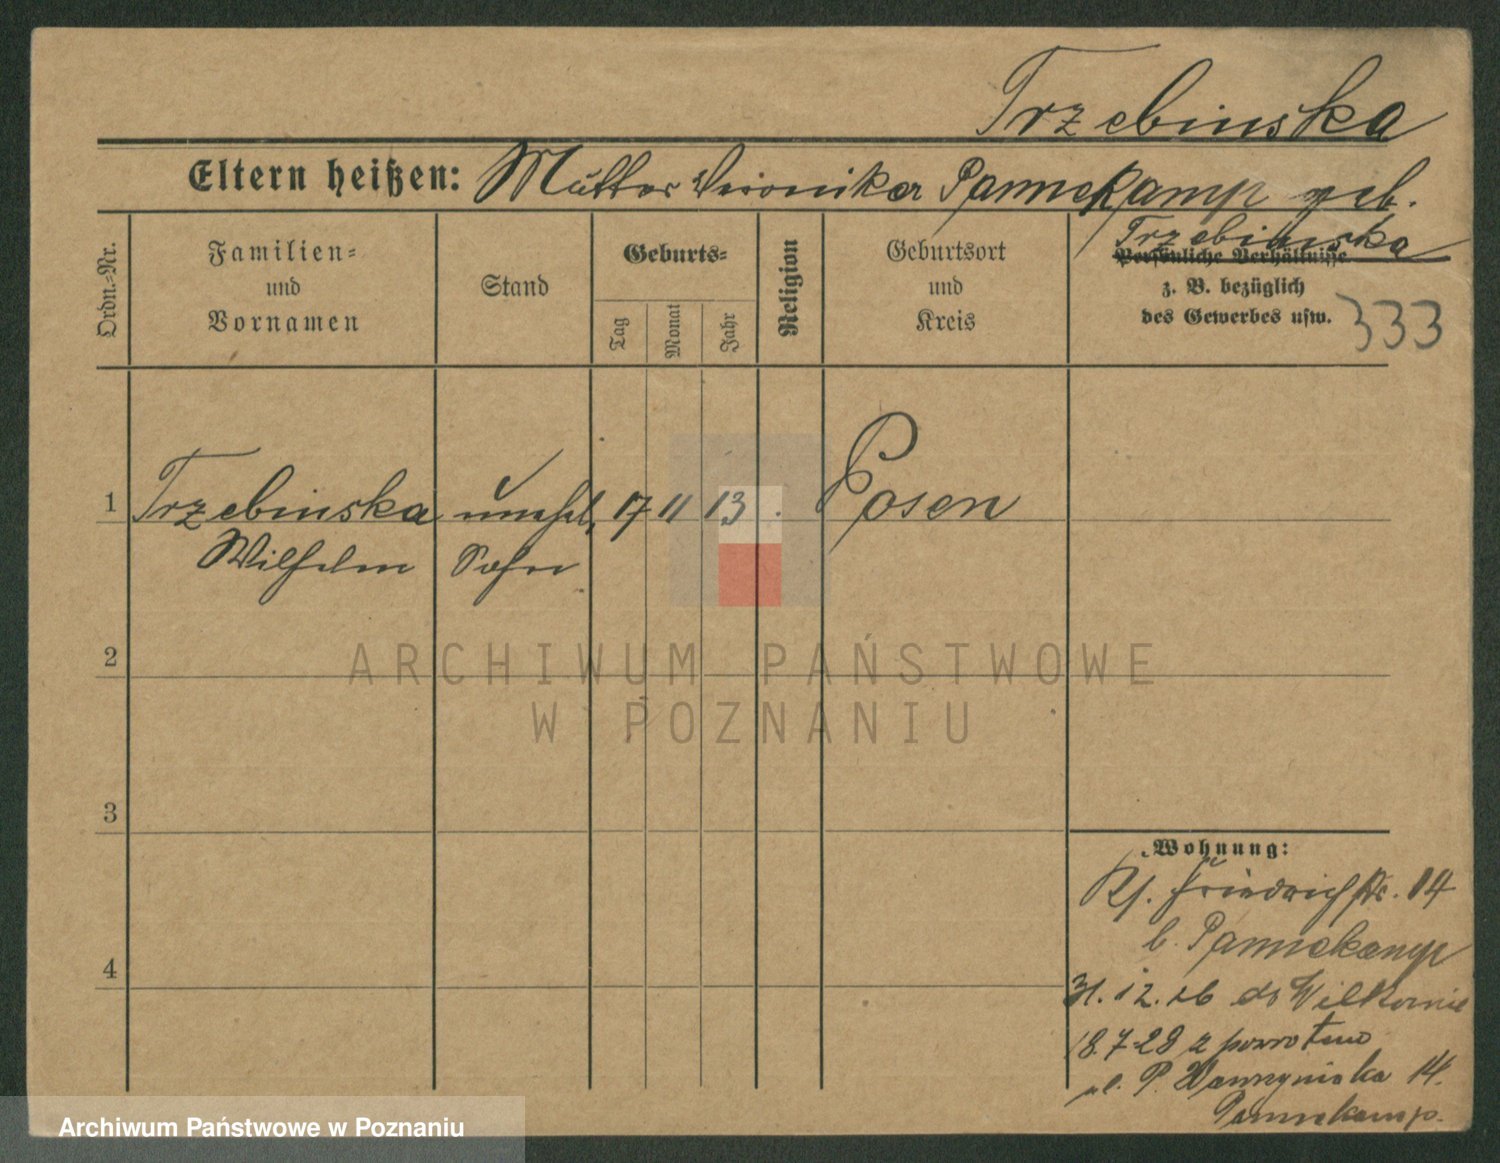 Trzebinska
Eltern heißen: Mutter Veronika Pannekamp geb.
Trzebinska
Ordn.-Nr.
Familien-
und
Vornamen
Stand
Geburts-
Tag
Monat
Jahr
Religion
Geburtsort
und
Kreis
Persönliche Verhältnisse
z. B. bezüglich
des Gewerbes usw.
333
1 Trzebinska unehel. 17 11 13 Posen
Wilhelm Sohn
2
3
4
Wohnung:
Kf. Friedrichstr. 14
b. Pannekamp
31.12.16 do
18.7.28 z powrotem
ul. P. Wawrzyniaka 14.
Pannekamp.
ARCHIWUM PAŃSTWOWE
W POZNANIU
Archiwum Państwowe w Poznaniu